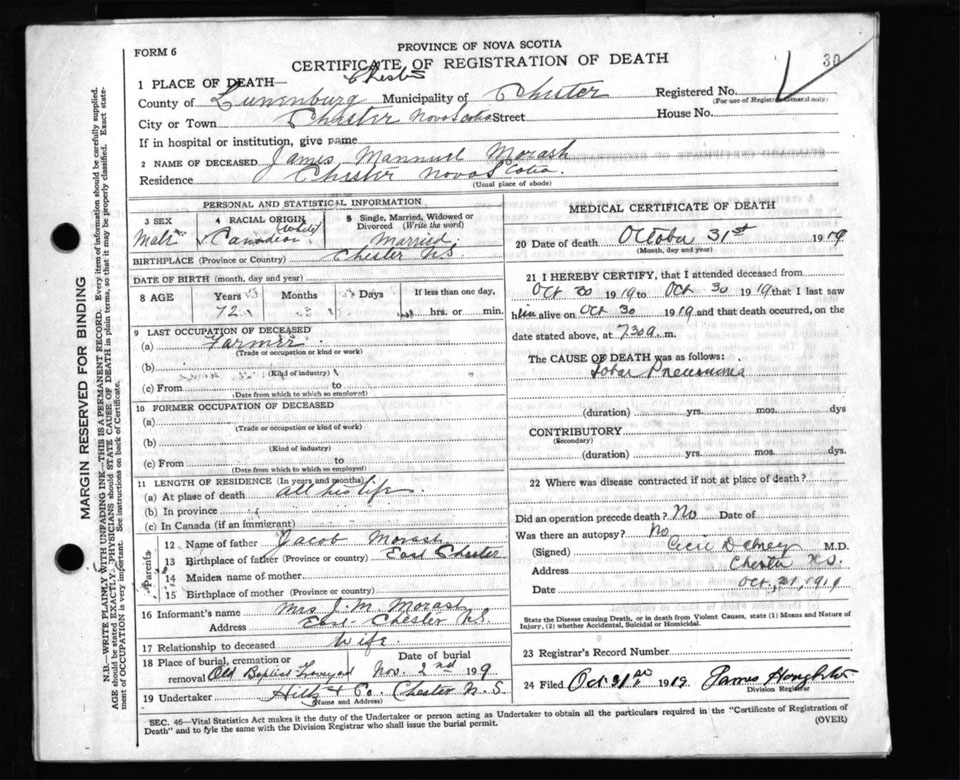 FORM 6
PROVINCE OF NOVA SCOTIA
30
CERTIFICATE OF REGISTRATION OF DEATH
1 PLACE OF DEATH— Chester
County of Lunenburg Municipality of Chester Registered No.
(For use of Registrar General only)
City or Town Chester Nova Scotia Street House No.
If in hospital or institution, give name
2 NAME OF DECEASED James Mannuel Morash
Residence Chester Nova Scotia.
(Usual place of abode)
PERSONAL AND STATISTICAL INFORMATION
3 SEX 4 RACIAL ORIGIN 5 Single, Married, Widowed or
Divorced (Write the word)
Male Canadian (White) Married
BIRTHPLACE (Province or Country) Chester N.S.
DATE OF BIRTH (month, day and year)
8 AGE Years Months Days If less than one day,
72 hrs. or min.
9 LAST OCCUPATION OF DECEASED
(a) Farmer
(Trade or occupation or kind or work)
(b)
(Kind of industry)
(c) From to
(Date from which to which so employed)
10 FORMER OCCUPATION OF DECEASED
(a)
(Trade or occupation or kind of work)
(b)
(Kind of industry)
(c) From to
(Date from which to which so employed)
11 LENGTH OF RESIDENCE (In years and months)
(a) At place of death all his life
(b) In province
(c) In Canada (if an immigrant)
Parents
12 Name of father Jacob Morash
13 Birthplace of father (Province or country) East Chester
14 Maiden name of mother
15 Birthplace of mother (Province or country)
16 Informant's name Mrs J. M. Morash
Address East Chester N.S.
17 Relationship to deceased Wife
18 Place of burial, cremation or Date of burial
removal Old Baptist Nov. 2nd 1919
19 Undertaker Hiltz & Co. Chester N.S.
(Name and Address)
MEDICAL CERTIFICATE OF DEATH
20 Date of death October 31st 1919
(Month, day and year)
21 I HEREBY CERTIFY, that I attended deceased from
Oct 30 1919 to Oct 30 1919 that I last saw
him alive on Oct 30 1919 and that death occurred, on the
date stated above, at 730 a. m.
The CAUSE OF DEATH was as follows:
Lobar Pneumonia
(duration) yrs. mos. dys
CONTRIBUTORY
(Secondary)
(duration) yrs. mos. dys.
22 Where was disease contracted if not at place of death?
Did an operation precede death? No Date of
Was there an autopsy? No
(Signed) Cecil M.D.
Address Chester N.S.
Date Oct, 31, 1919
State the Disease causing Death, or in death from Violent Causes, state (1) Means and Nature of
Injury, (2) whether Accidental, Suicidal or Homicidal.
23 Registrar's Record Number
24 Filed Oct. 31st 1919 James Houghton
Division Registrar
SEC. 46—Vital Statistics Act makes it the duty of the Undertaker or person acting as Undertaker to obtain all the particulars required in the "Certificate of Registration of
Death" and to fyle the same with the Division Registrar who shall issue the burial permit.
(OVER)
MARGIN RESERVED FOR BINDING
N.B.—WRITE PLAINLY, WITH UNFADING INK—THIS IS A PERMANENT RECORD. Every item of information should be carefully supplied.
AGE should be stated EXACTLY. PHYSICIANS should STATE CAUSE OF DEATH in plain terms, so that it may be properly classified. Exact state-
ment of OCCUPATION is very important. See instructions on back of Certificate.